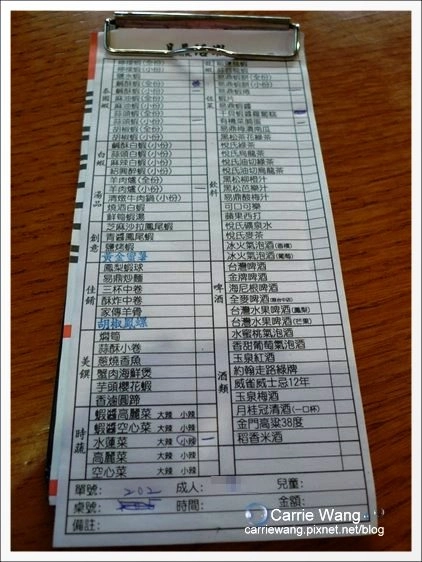 泰國蝦
檸檬蝦(小份)
鹽水蝦
鹹酥蝦(全份)
鹹酥蝦(小份)
麻油蝦(全份)
麻油蝦(小份)
蒜頭蝦(全份)
蒜頭蝦(小份)
胡椒蝦(全份)
胡椒蝦(小份)
白蝦
鹹酥白蝦(小份)
蒜頭白蝦(小份)
麻辣白蝦(小份)
紹興醉蝦(小份)
湯品
羊肉爐(全份)
羊肉爐(小份)
清燉牛肉鍋(小份)
燒酒白蝦
鮮筍蝦湯
創意
芝麻沙拉鳳尾蝦
青醬鳳尾蝦
鹽烤蝦
黃金窖薯
佳餚
鳳梨蝦球
易鼎炒麵
三杯中卷
酥炸中卷
家傳羊骨
胡椒鳳螺
美饌
燜筍
蒜酥小卷
蔥燒香魚
蟹肉海鮮煲
芋頭櫻花蝦
香滷圓蹄
時蔬
蝦醬高麗菜 大辣 小辣
蝦醬空心菜 大辣 小辣
水蓮菜 大辣 小辣
高麗菜 大辣 小辣
空心菜 大辣 小辣
佐菜
易鼎蝦餅(全份)
易鼎蝦餅(小份)
易鼎蝦捲
蝦片
易鼎蝦醬
干貝蝦醬蘿蔔糕
有機菜脆蛋
易鼎梅漬南瓜
黑松茶花綠茶
飲料
悅氏綠茶
悅氏烏龍茶
悅氏油切綠茶
悅氏油切烏龍茶
黑松柳橙汁
黑松芭樂汁
易鼎酸梅汁
可口可樂
蘋果西打
悅氏礦泉水
悅氏麥茶
冰火氣泡酒(香檳)
冰火氣泡酒(葡萄)
啤酒
台灣啤酒
金牌啤酒
海尼根啤酒
全麥啤酒(限台中店)
台灣水果啤酒(鳳梨)
台灣水果啤酒(芒果)
酒類
水蜜桃氣泡酒
香甜葡萄氣泡酒
玉泉紅酒
約翰走路綠牌
威雀威士忌12年
玉泉梅酒
月桂冠清酒(一口杯)
金門高粱38度
稻香米酒
單號: 202 成人: 兒童:
桌號: 時間: 金額:
備註:
Carrie Wang
carriewang.pixnet.net/blog